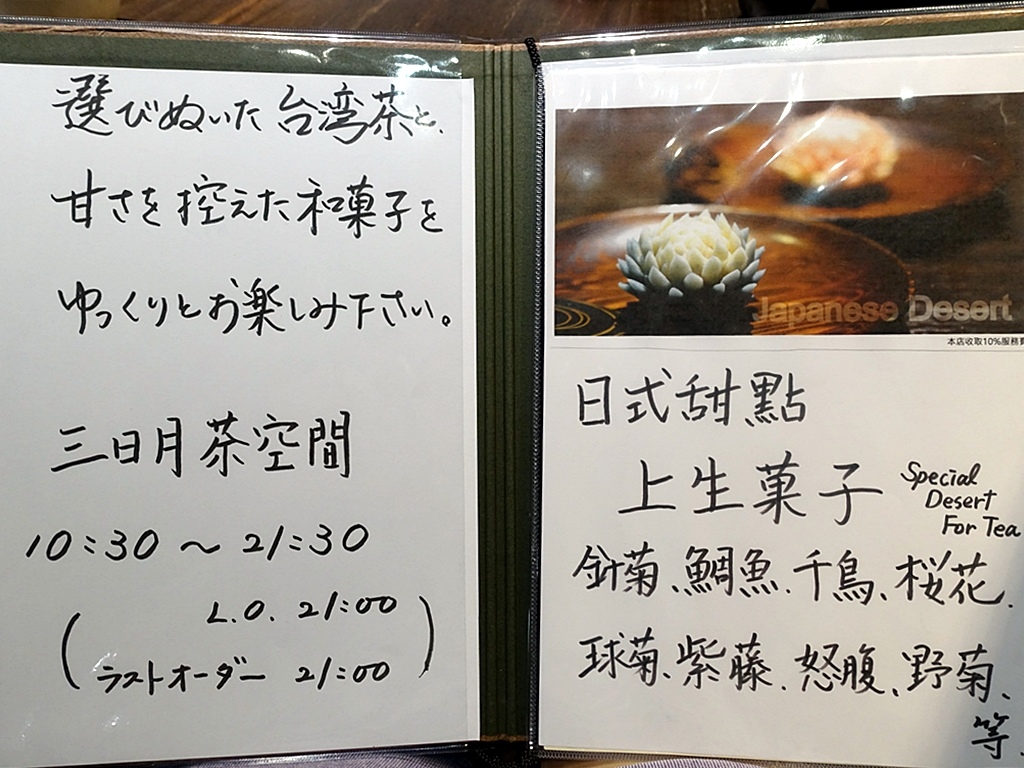 選びぬいた台湾茶と、
甘さを控えた和菓子を
ゆっくりとお楽しみ下さい。
三日月茶空間
10:30 ~ 21:30
( L.O. 21:00
ラストオーダー 21:00 )
Japanese Desert
本店收取10%服務費
日式甜點
上生菓子
Special
Desert
For Tea
針菊、鯛魚、千鳥、桜花、
球菊、紫藤、怒腹、野菊、
等、